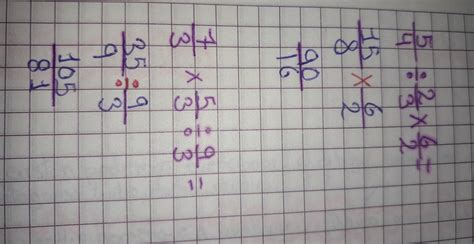 5/4 ÷ 2/3 × 6/2 =
15/8 × 6/2
90/16
7/3 × 5/3 ÷ 9/3 =
35/9 ÷ 9/3
105/81